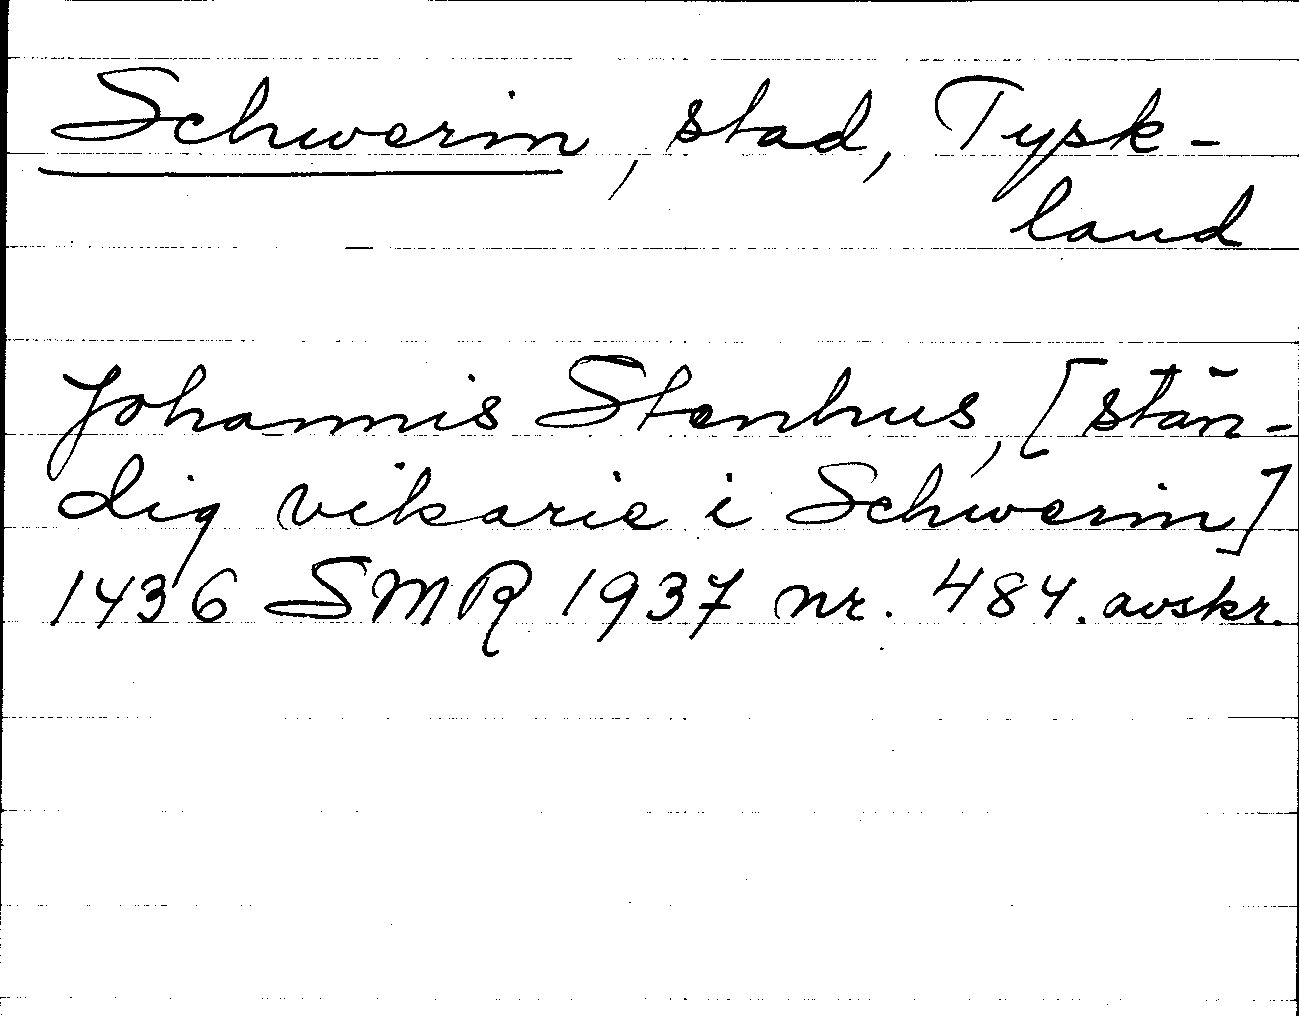 Schwerin, stad, Tysk-
land
Johannis Stenhus, [stän-
dig vikarie i Schwerin]
1436 SMR 1937 nr. 484. avskr.